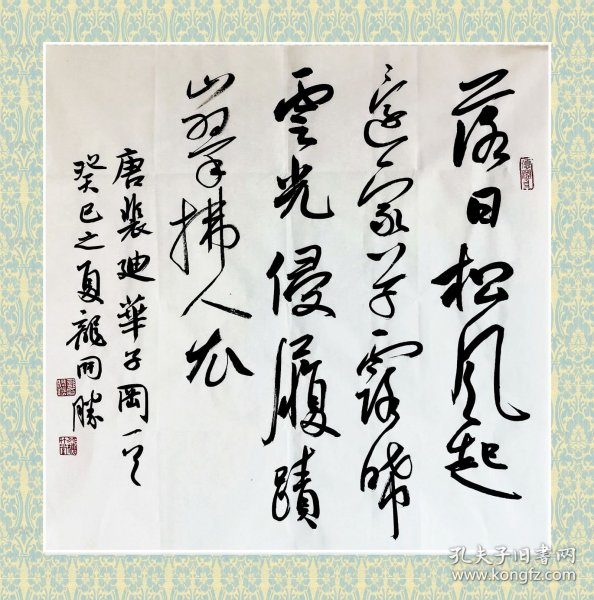 落日松风起
還家草露晞
雲光侵履蹟
山翠拂人衣
唐裴廸華子岡一首
癸巳之夏龍開勝
孔夫子旧书网
www.kongfz.com